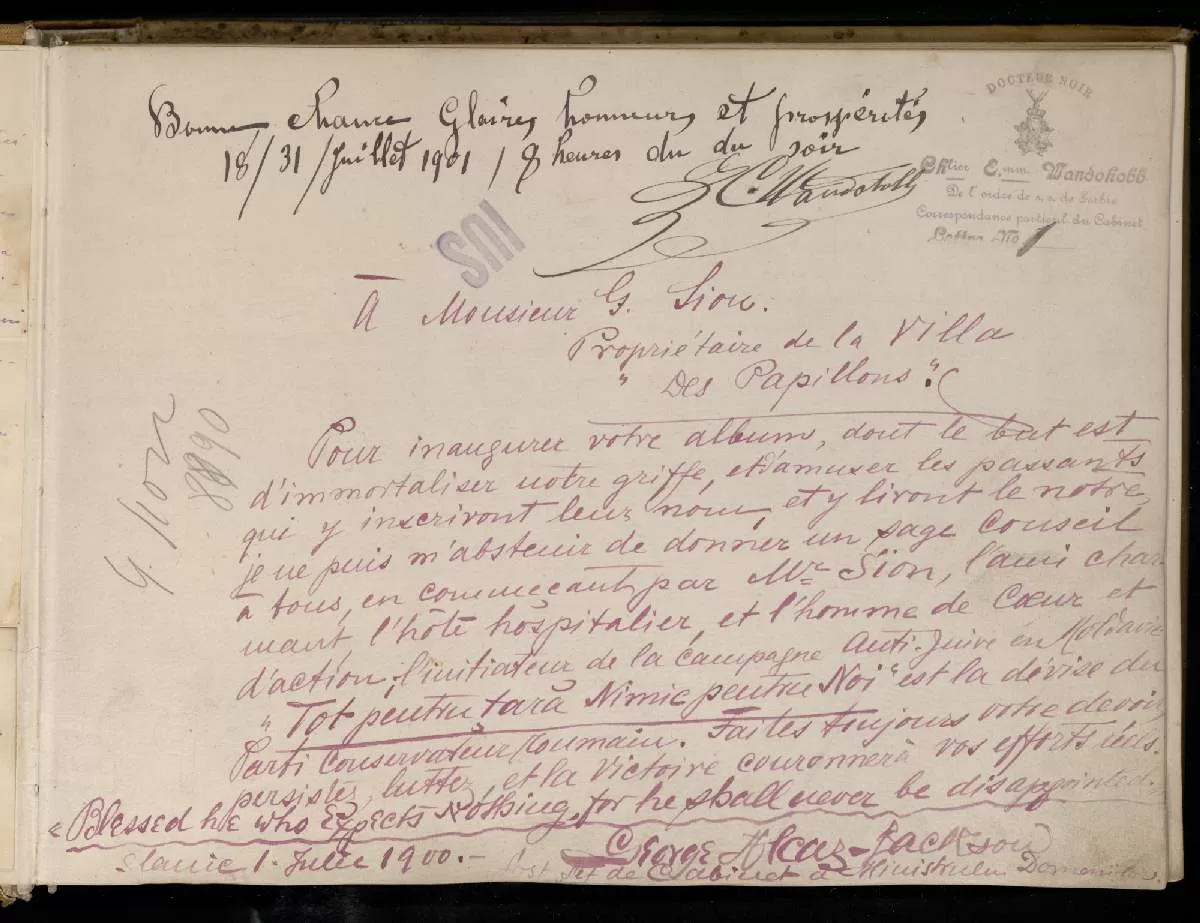 Bonne chance Gloires honneurs et prospérités
18/31/Juillet 1901 / 8 heures du du soir
DOCTEUR NOIR
Ch lier E. mm. Wandohobb
De l'ordre de
Correspondance particul. du Cabinet
Lettre No 1
SUI
À Monsieur G. Sion.
Propriétaire de la Villa
" Des Papillons ".
Pour inaugurer votre album, dont le but est
d'immortaliser votre griffe, et d'amuser les passants
qui y inscriront leur nom, et y liront le notre,
je ne puis m'abstenir de donner un sage conseil
à tous, en commecant par Mr. Sion, l'ami char-
mant, l'hôte hospitalier, et l'homme de Cœur et
d'action; l'initiateur de la campagne Anti-Juive en Moldavie
" Tot pentru tară Nimic pentru Noi" est la dévise du
Parti Conservateur Roumain. Faites toujours votre devoir,
persistez, luttez, et la Victoire couronnera vos efforts
"Blessed he who Expects Nothing, for he shall never be disappointed.
Slanic 1. Julie 1900.-
George Alcaz-Jackson
de Cabinet a Ministrului Domeniilor
8890